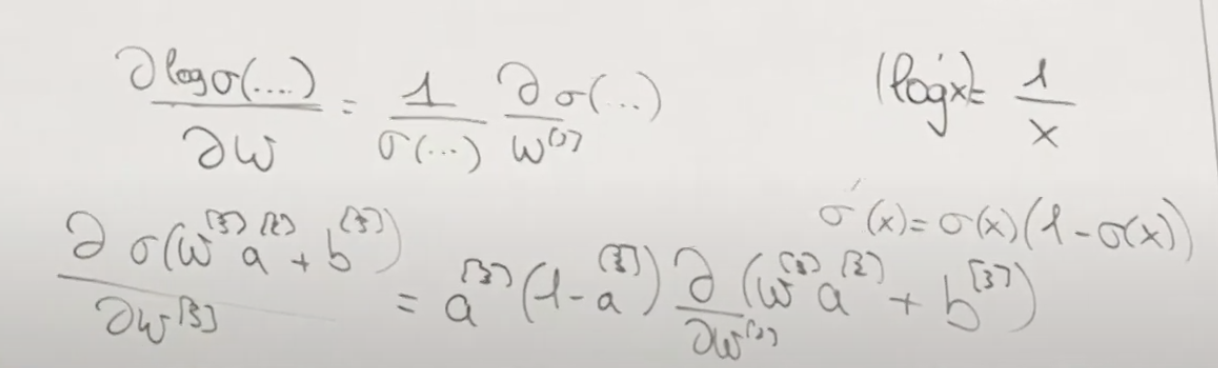 ∂ log σ(....) / ∂w = 1 / σ(...) ∂ σ(...) / w^[3]
(log x)' = 1 / x
σ'(x) = σ(x)(1 - σ(x))
∂ σ(w^[3] a^[2] + b^[3]) / ∂w^[3] = a^[3] (1 - a^[3]) ∂ (w^[3] a^[2] + b^[3]) / ∂w^[3]